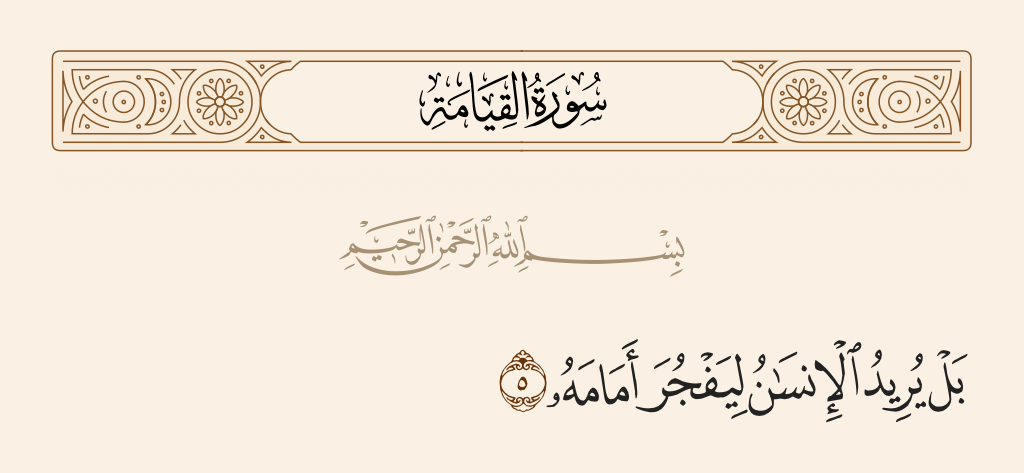 سُورَةُ القِيَامَةِ
بِسْمِ ٱللَّهِ ٱلرَّحْمَٰنِ ٱلرَّحِيمِ
بَلْ يُرِيدُ ٱلْإِنسَـٰنُ لِيَفْجُرَ أَمَامَهُۥ ٥